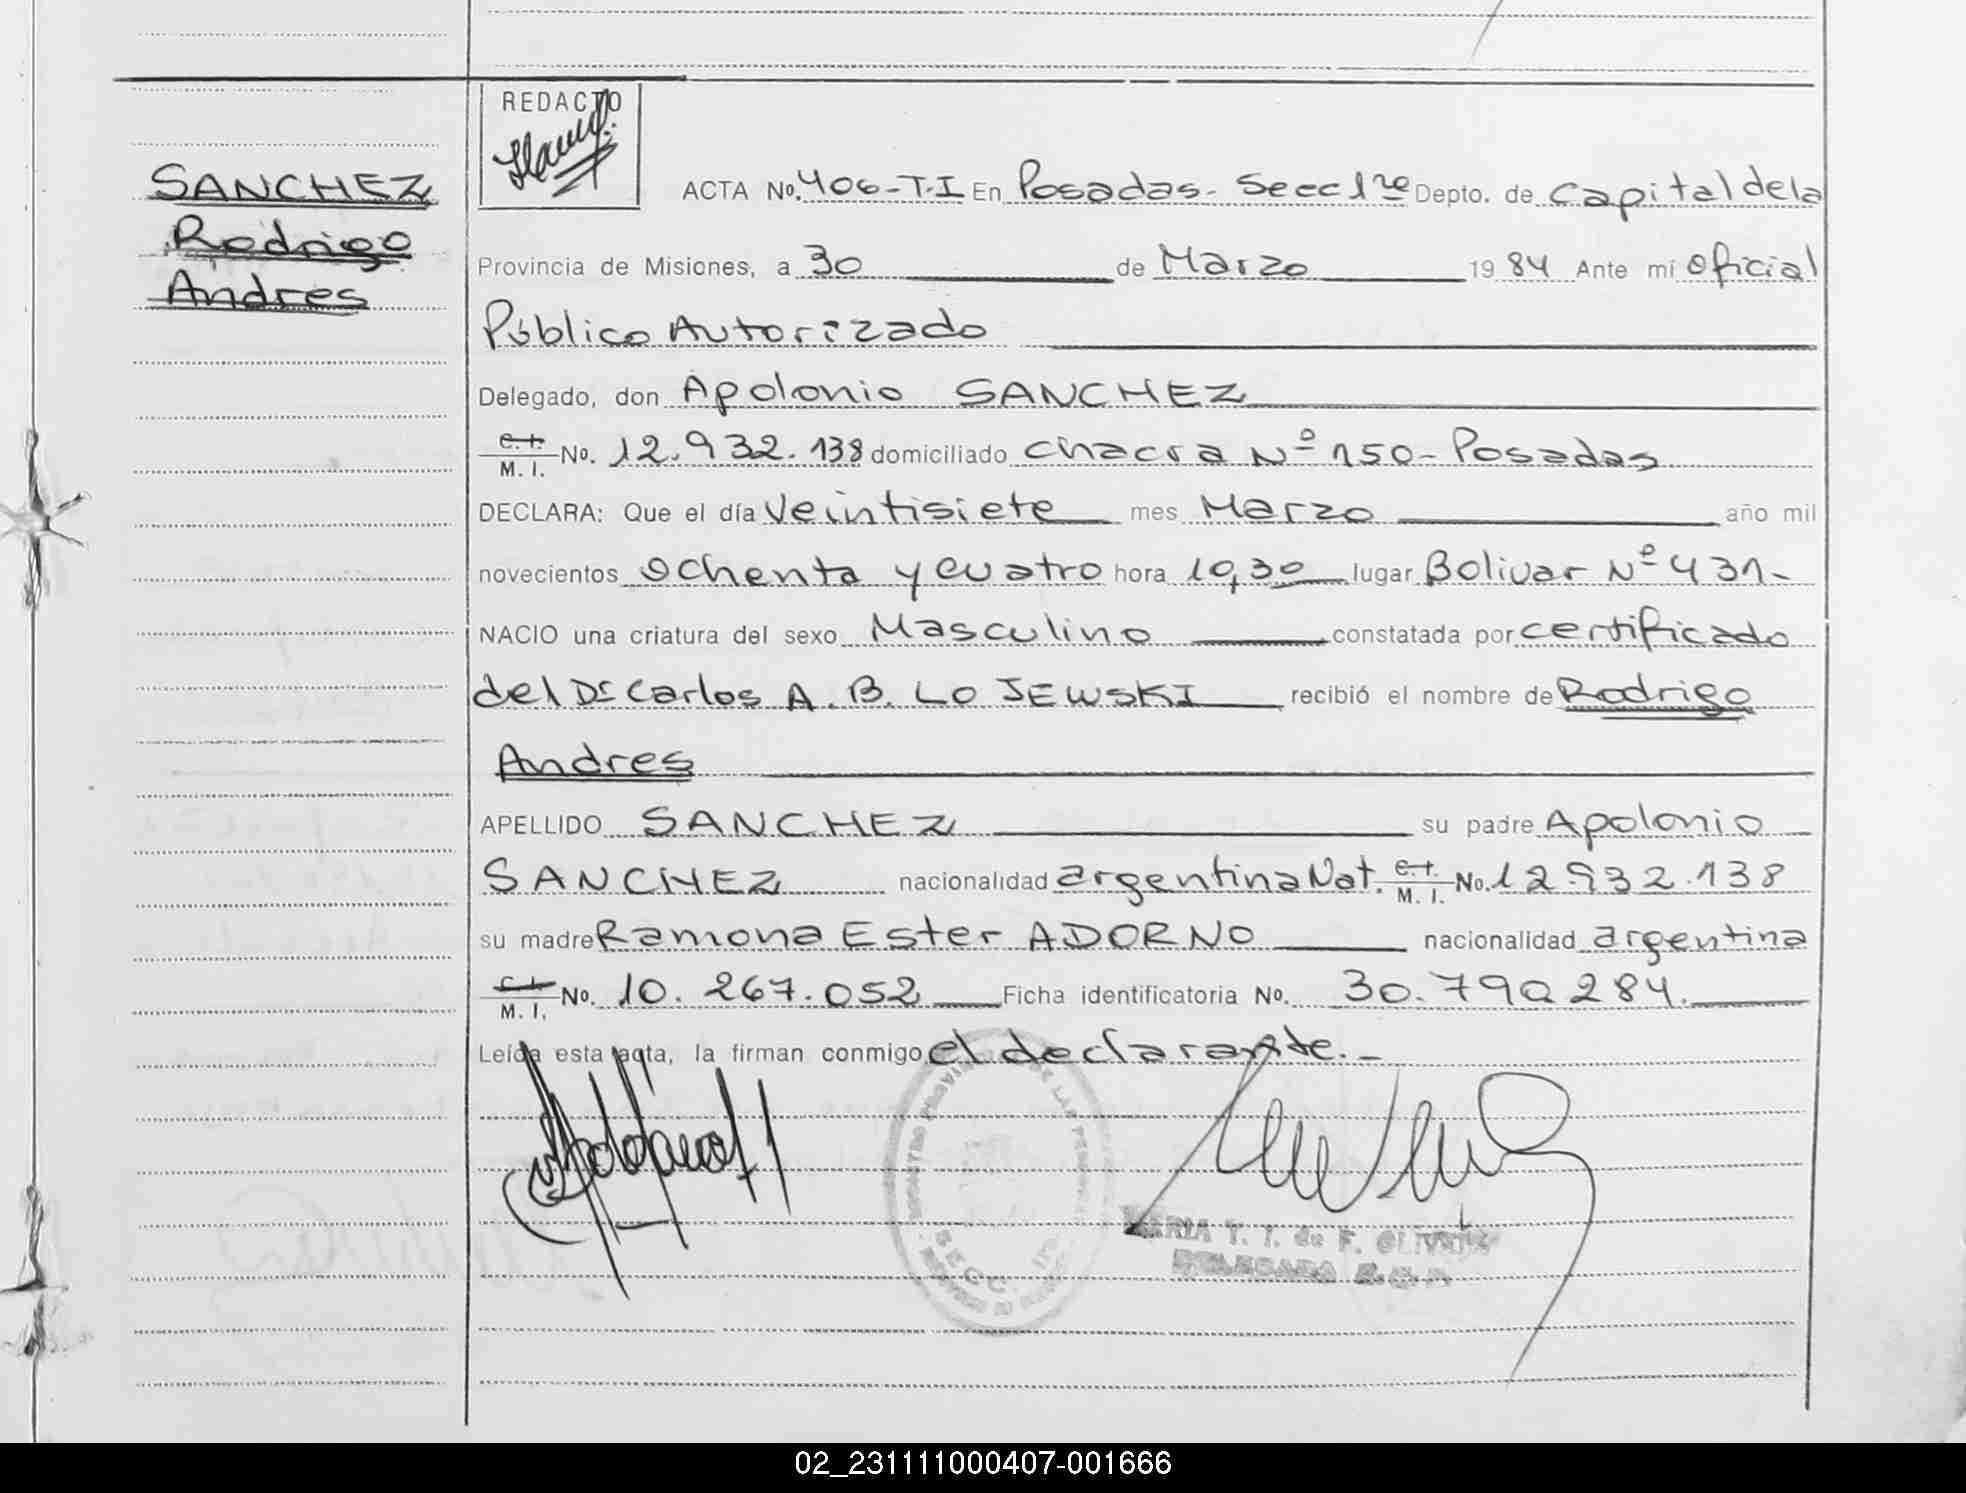 REDACTO
SANCHEZ
Rodrigo
Andres
ACTA No. 406-T.I En Posadas - Secc 1ra Depto. de Capital de la
Provincia de Misiones, a 30 de Marzo 1984 Ante mi Oficial
Público Autorizado
Delegado, don Apolonio SANCHEZ
C.I. M.I. No. 12.932.138 domiciliado Chacra Nº 150 - Posadas
DECLARA: Que el día Veintisiete mes Marzo año mil
novecientos Ochenta y cuatro hora 10,30 lugar Bolivar Nº 431-
NACIO una criatura del sexo Masculino constatada por certificado
del Dr Carlos A. B. LOJEWSKI recibió el nombre de Rodrigo
Andres
APELLIDO SANCHEZ su padre Apolonio
SANCHEZ nacionalidad argentina Nat. C.I. M.I. No. 12932.138
su madre Ramona Ester ADORNO nacionalidad argentina
C.I. M.I. No. 10.267.052 Ficha identificatoria No. 30.790284.
Leída esta acta, la firman conmigo el declarante.-
SECC. 1ra
MARIA T. T. de F. OLIVERA
DELEGADA R.C.P.
02_231111000407-001666